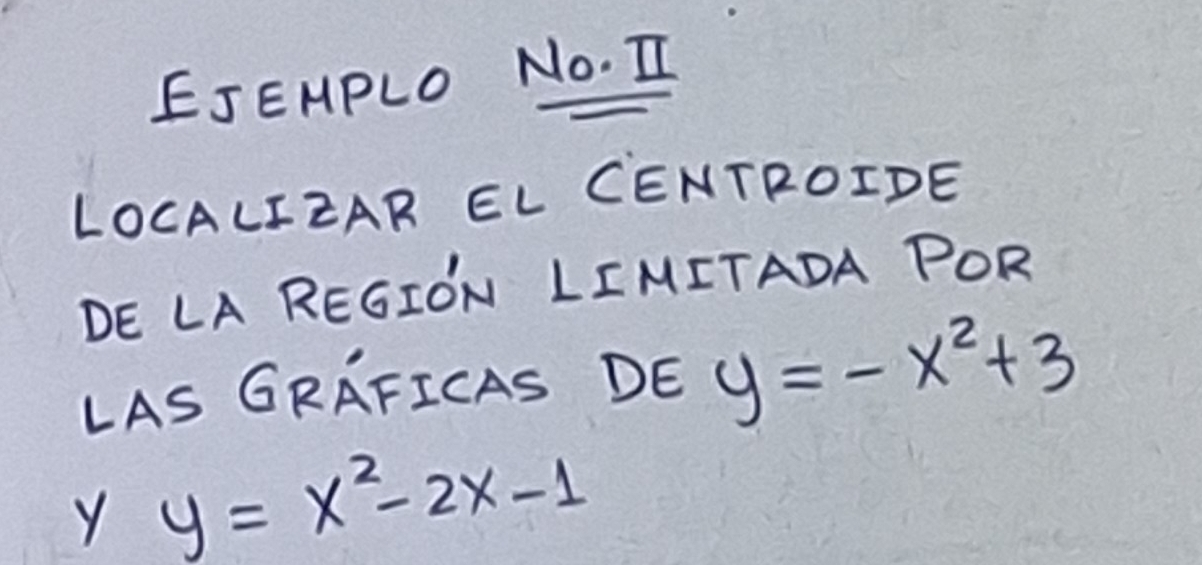 EJEMPLO No. II
LOCALIZAR EL CENTROIDE
DE LA REGIÓN LIMITADA POR
LAS GRÁFICAS DE y = - x² + 3
Y y = x² - 2x - 1